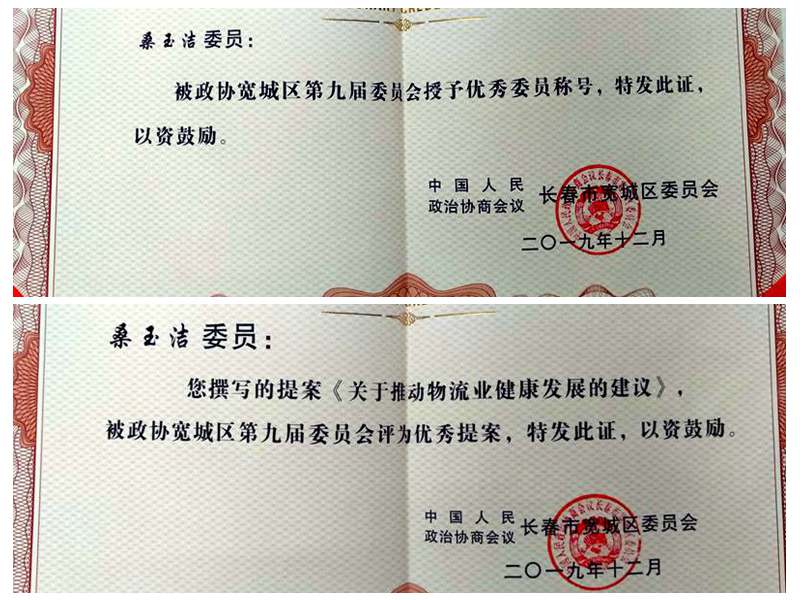 桑玉洁委员：
被政协宽城区第九届委员会授予优秀委员称号，特发此证，
以资鼓励。
中国人民
政治协商会议
长春市宽城区委员会
二〇一九年十二月
桑玉洁委员：
您撰写的提案《关于推动物流业健康发展的建议》，
被政协宽城区第九届委员会评为优秀提案，特发此证，以资鼓励。
中国人民
政治协商会议
长春市宽城区委员会
二〇一九年十二月